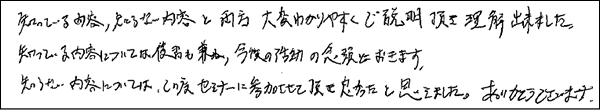 知っている内容,知らない内容と両方 大変わかりやすくご説明頂き理解出来ました。
知っている内容については復習も兼ね,今後の活動の念頭におきます。
知らない内容については,この度セミナーに参加させて頂き良かったと思えました。ありがとうございます。